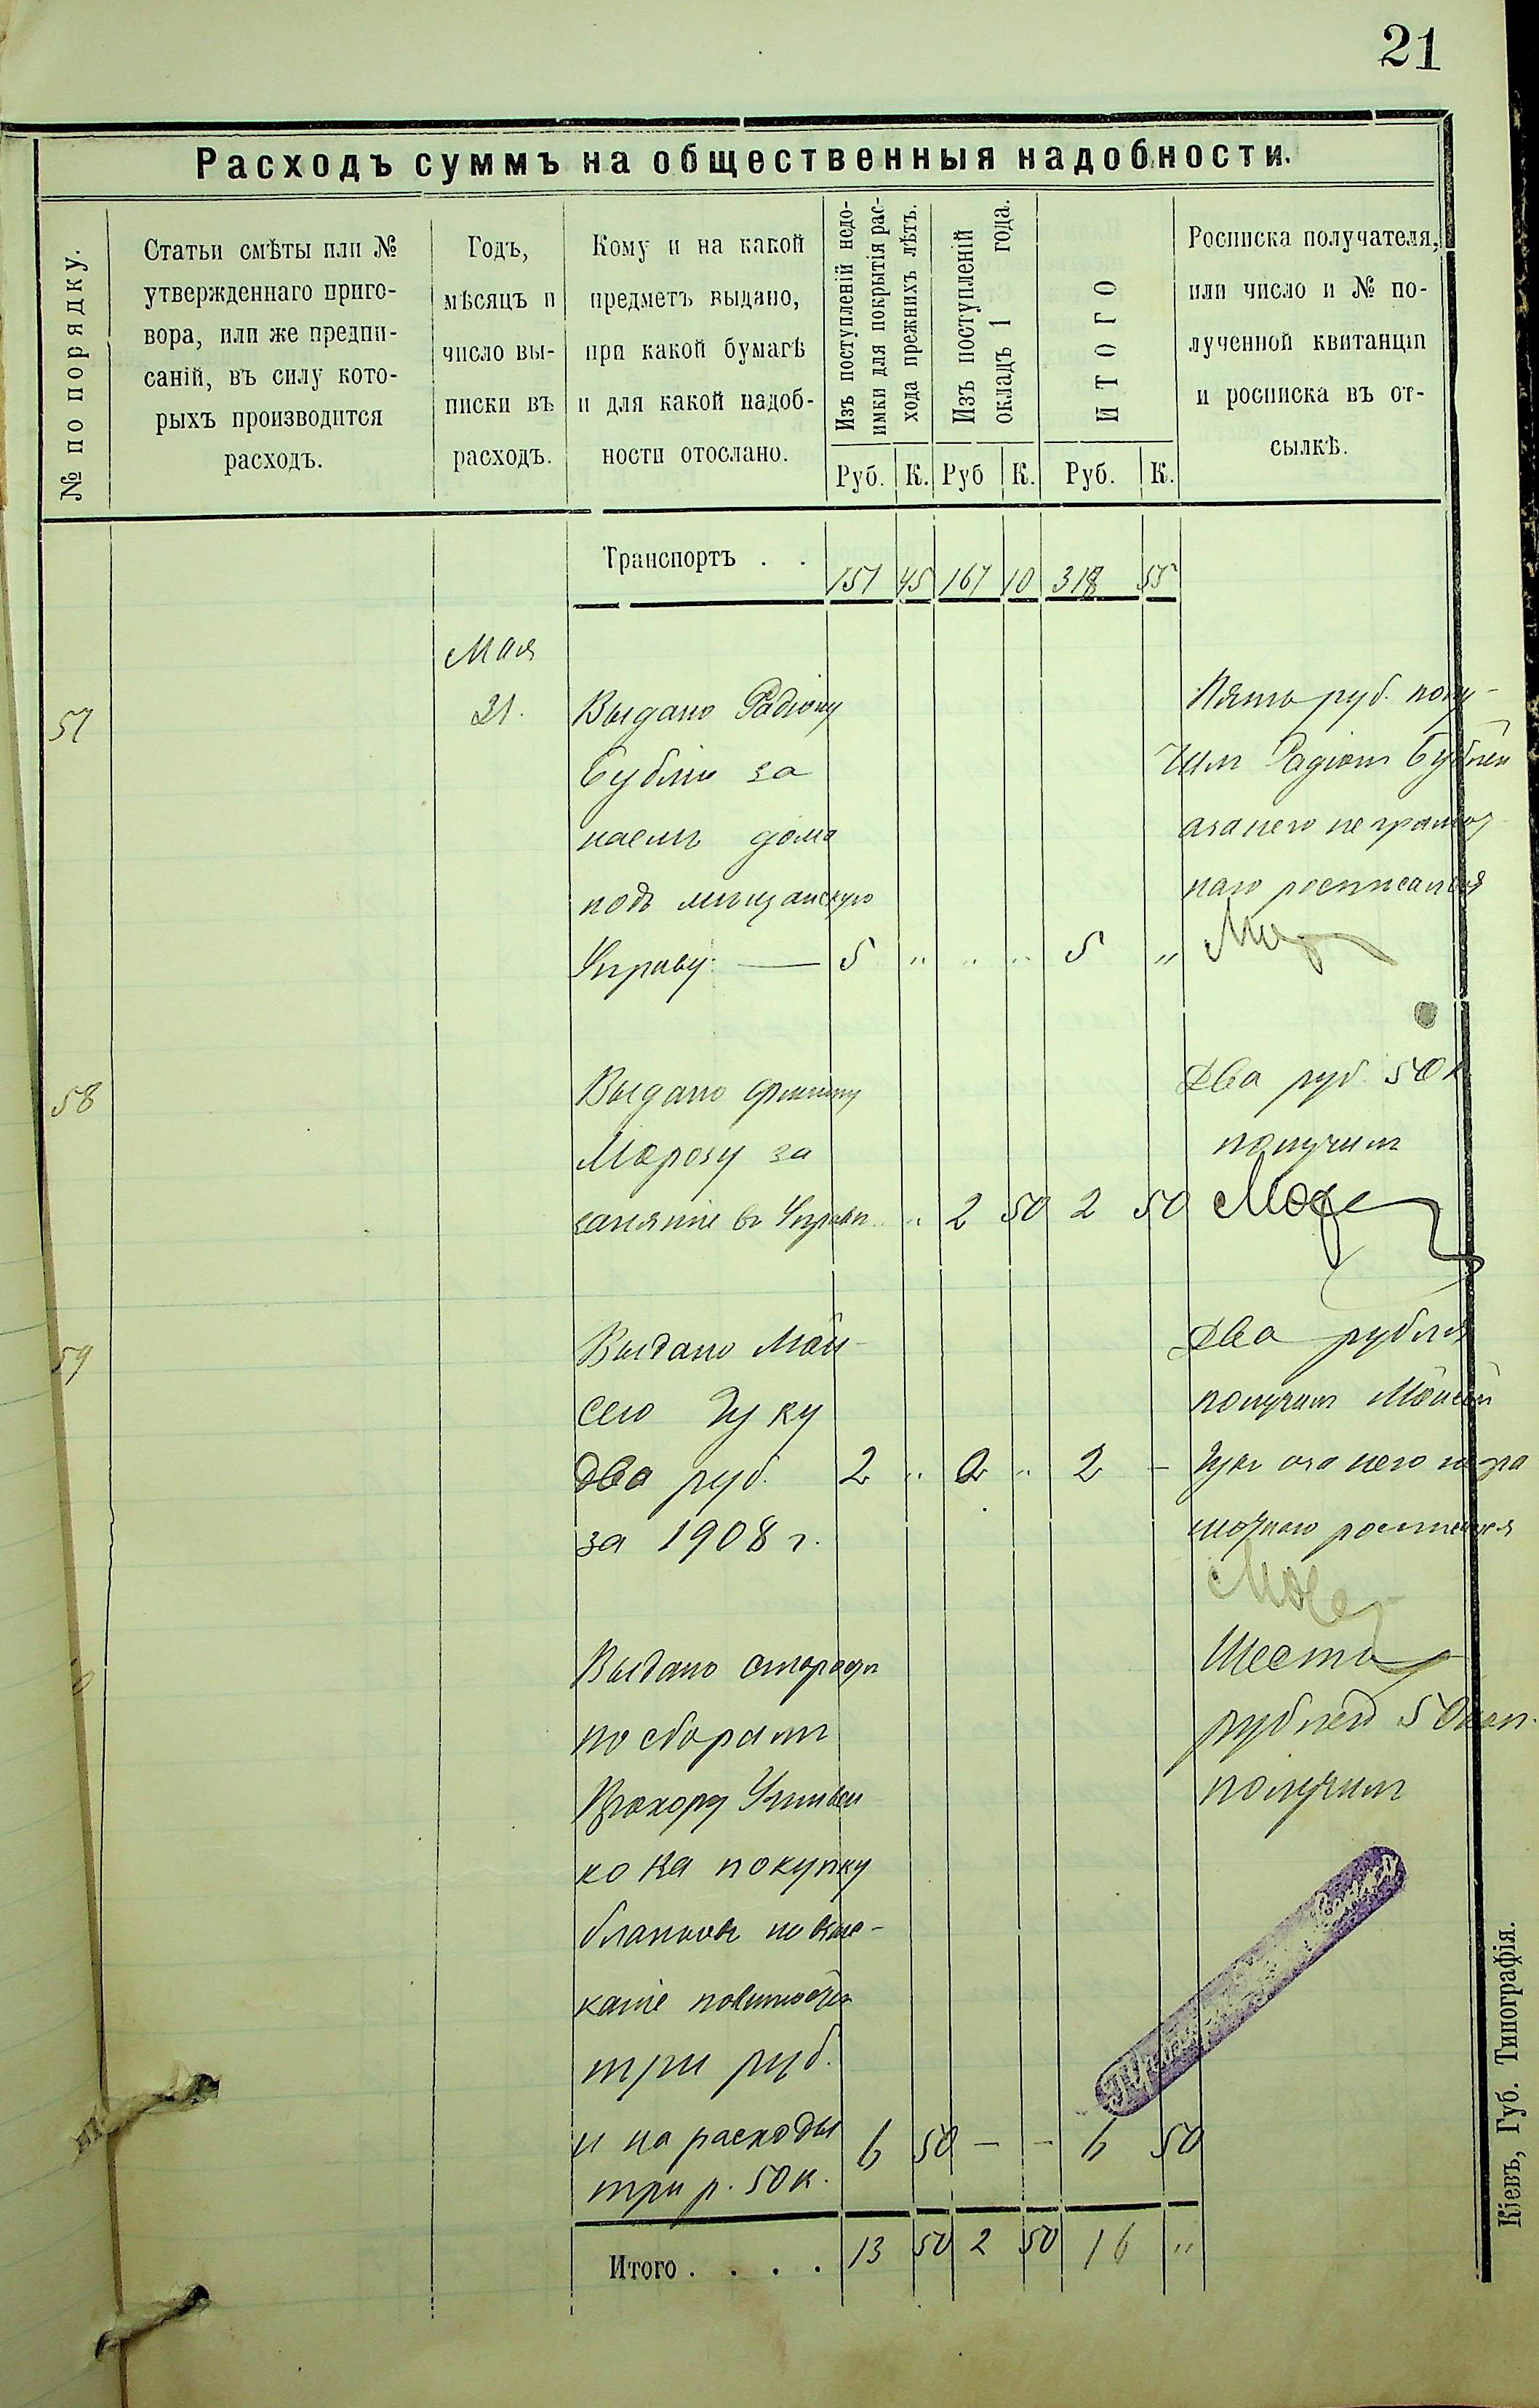 21
Расходъ суммъ на общественныя надобности.
№ по порядку.
Статьи смѣты или №
утвержденнаго приго-
вора, или же предпи-
саній, въ силу кото-
рыхъ производится
расходъ.
Годъ,
мѣсяцъ и
число вы-
писки въ
расходъ.
Кому и на какой
предметъ выдано,
при какой бумагѣ
и для какой надоб-
ности отослано.
Изъ поступленій недо-
имки для покрытія рас-
хода прежнихъ лѣтъ.
Изъ поступленій
окладъ 1 года.
ИТОГО
Росписка получателя,
или число и № по-
лученной квитанціи
и росписка въ от-
сылкѣ.
Руб. К. Руб К. Руб. К.
Транспортъ . . 151 45 167 10 318 55
Мая
57 21. Выдано Радіону
Бублію за
наемъ дома
подъ мѣщанскую
Управу. — 5 „ „ „ 5 „
Пять руб. полу-
чилъ Радіонъ
а за него неграмот
наго росписался
58 Выдано
Морозу за
занятіе въ Управѣ „ „ 2 50 2 50
Два руб. 50 к
получилъ
59 Выдано Мои-
сею Гуку
два руб. 2 „ „ 2 -
за 1908 г.
Два рубля
получилъ Моисей
Гукъ а за него негра
мотнаго росписался
Выдано
по сборамъ
Прохору
ко на покупку
бланковъ по взыс-
каніе повинностей
три руб.
и на расходы 6 50 — — 6 50
три р. 50 к.
Шесть
рублей 50 коп.
получилъ
Итого . . . . 13 50 2 50 16 „
Кіевъ, Губ. Типографія.